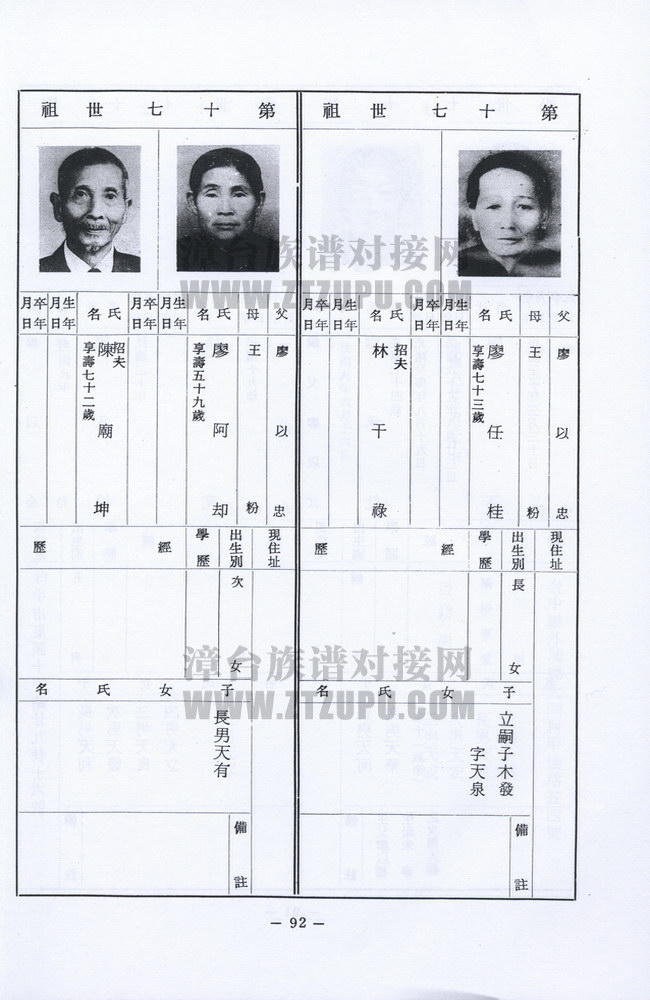 第十七世祖
父 母 氏名 生年月日 卒年月日 氏名 生年月日 卒年月日
廖以忠
王粉
廖任桂
享壽七十三歲
招夫
林干祿
現住址
出生別 長女
學歷
經歷
子女氏名
立嗣子木發
字天泉
備註
第十七世祖
父 母 氏名 生年月日 卒年月日 氏名 生年月日 卒年月日
廖以忠
王粉
廖阿却
享壽五十九歲
招夫
陳廟坤
享壽七十二歲
現住址
出生別 次女
學歷
經歷
子女氏名
長男天有
備註
漳台族谱对接网
WWW.ZTZUPU.COM
漳台族谱对接网
WWW.ZTZUPU.COM
— 92 —